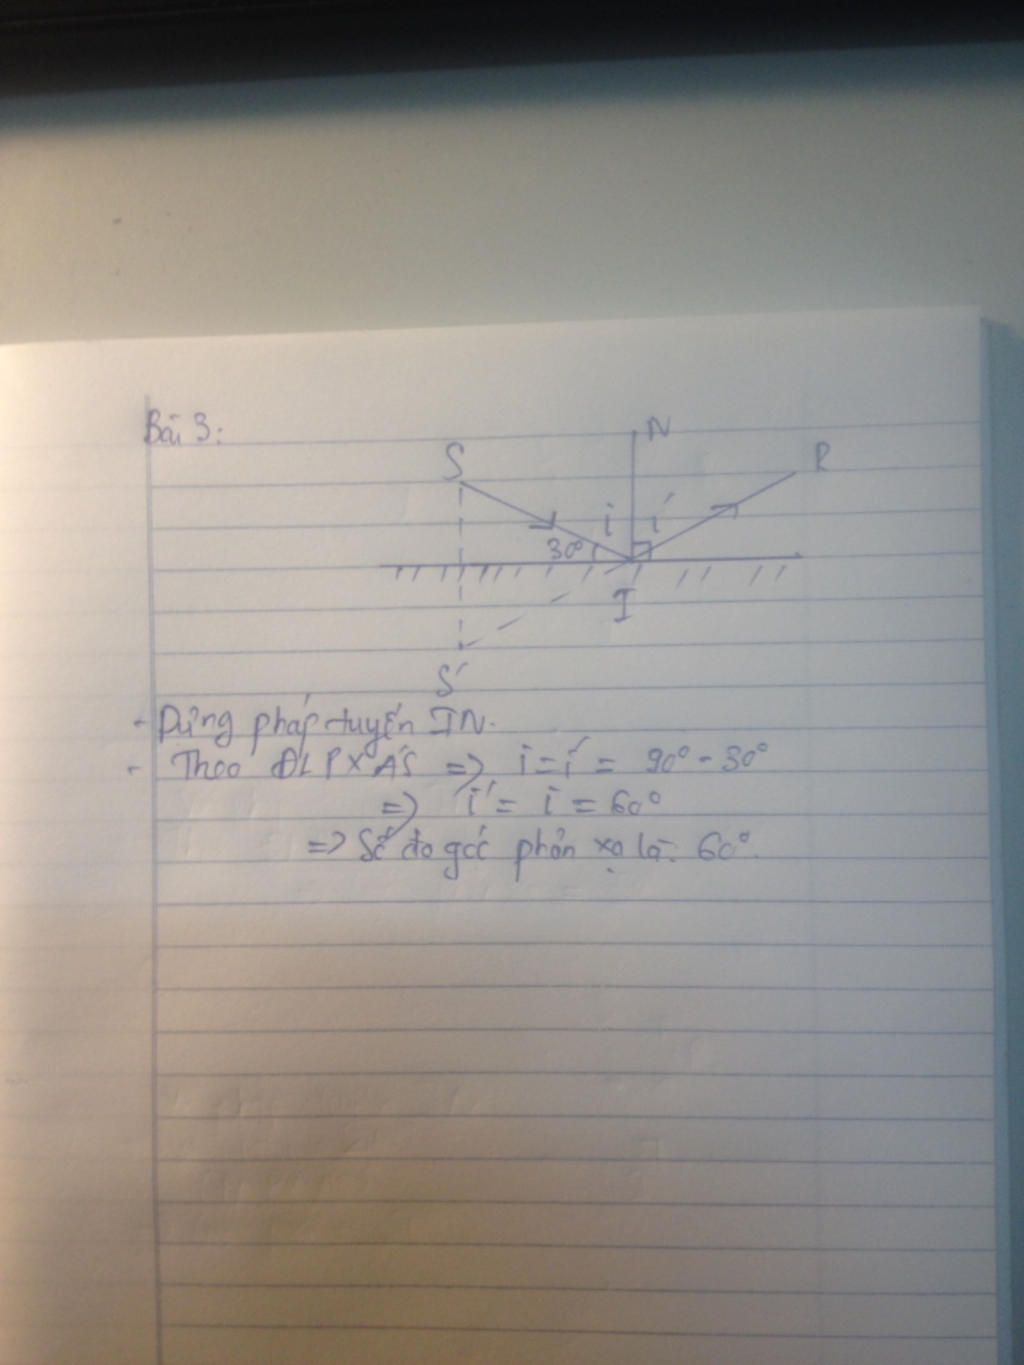 Bài 3:
N
S
R
i
i'
30°
I
S'
- Dựng pháp tuyến IN.
- Theo ĐLPXAS => i = i' = 90° - 30°
=> i' = i = 60°
=> Số đo góc phản xạ là: 60°.